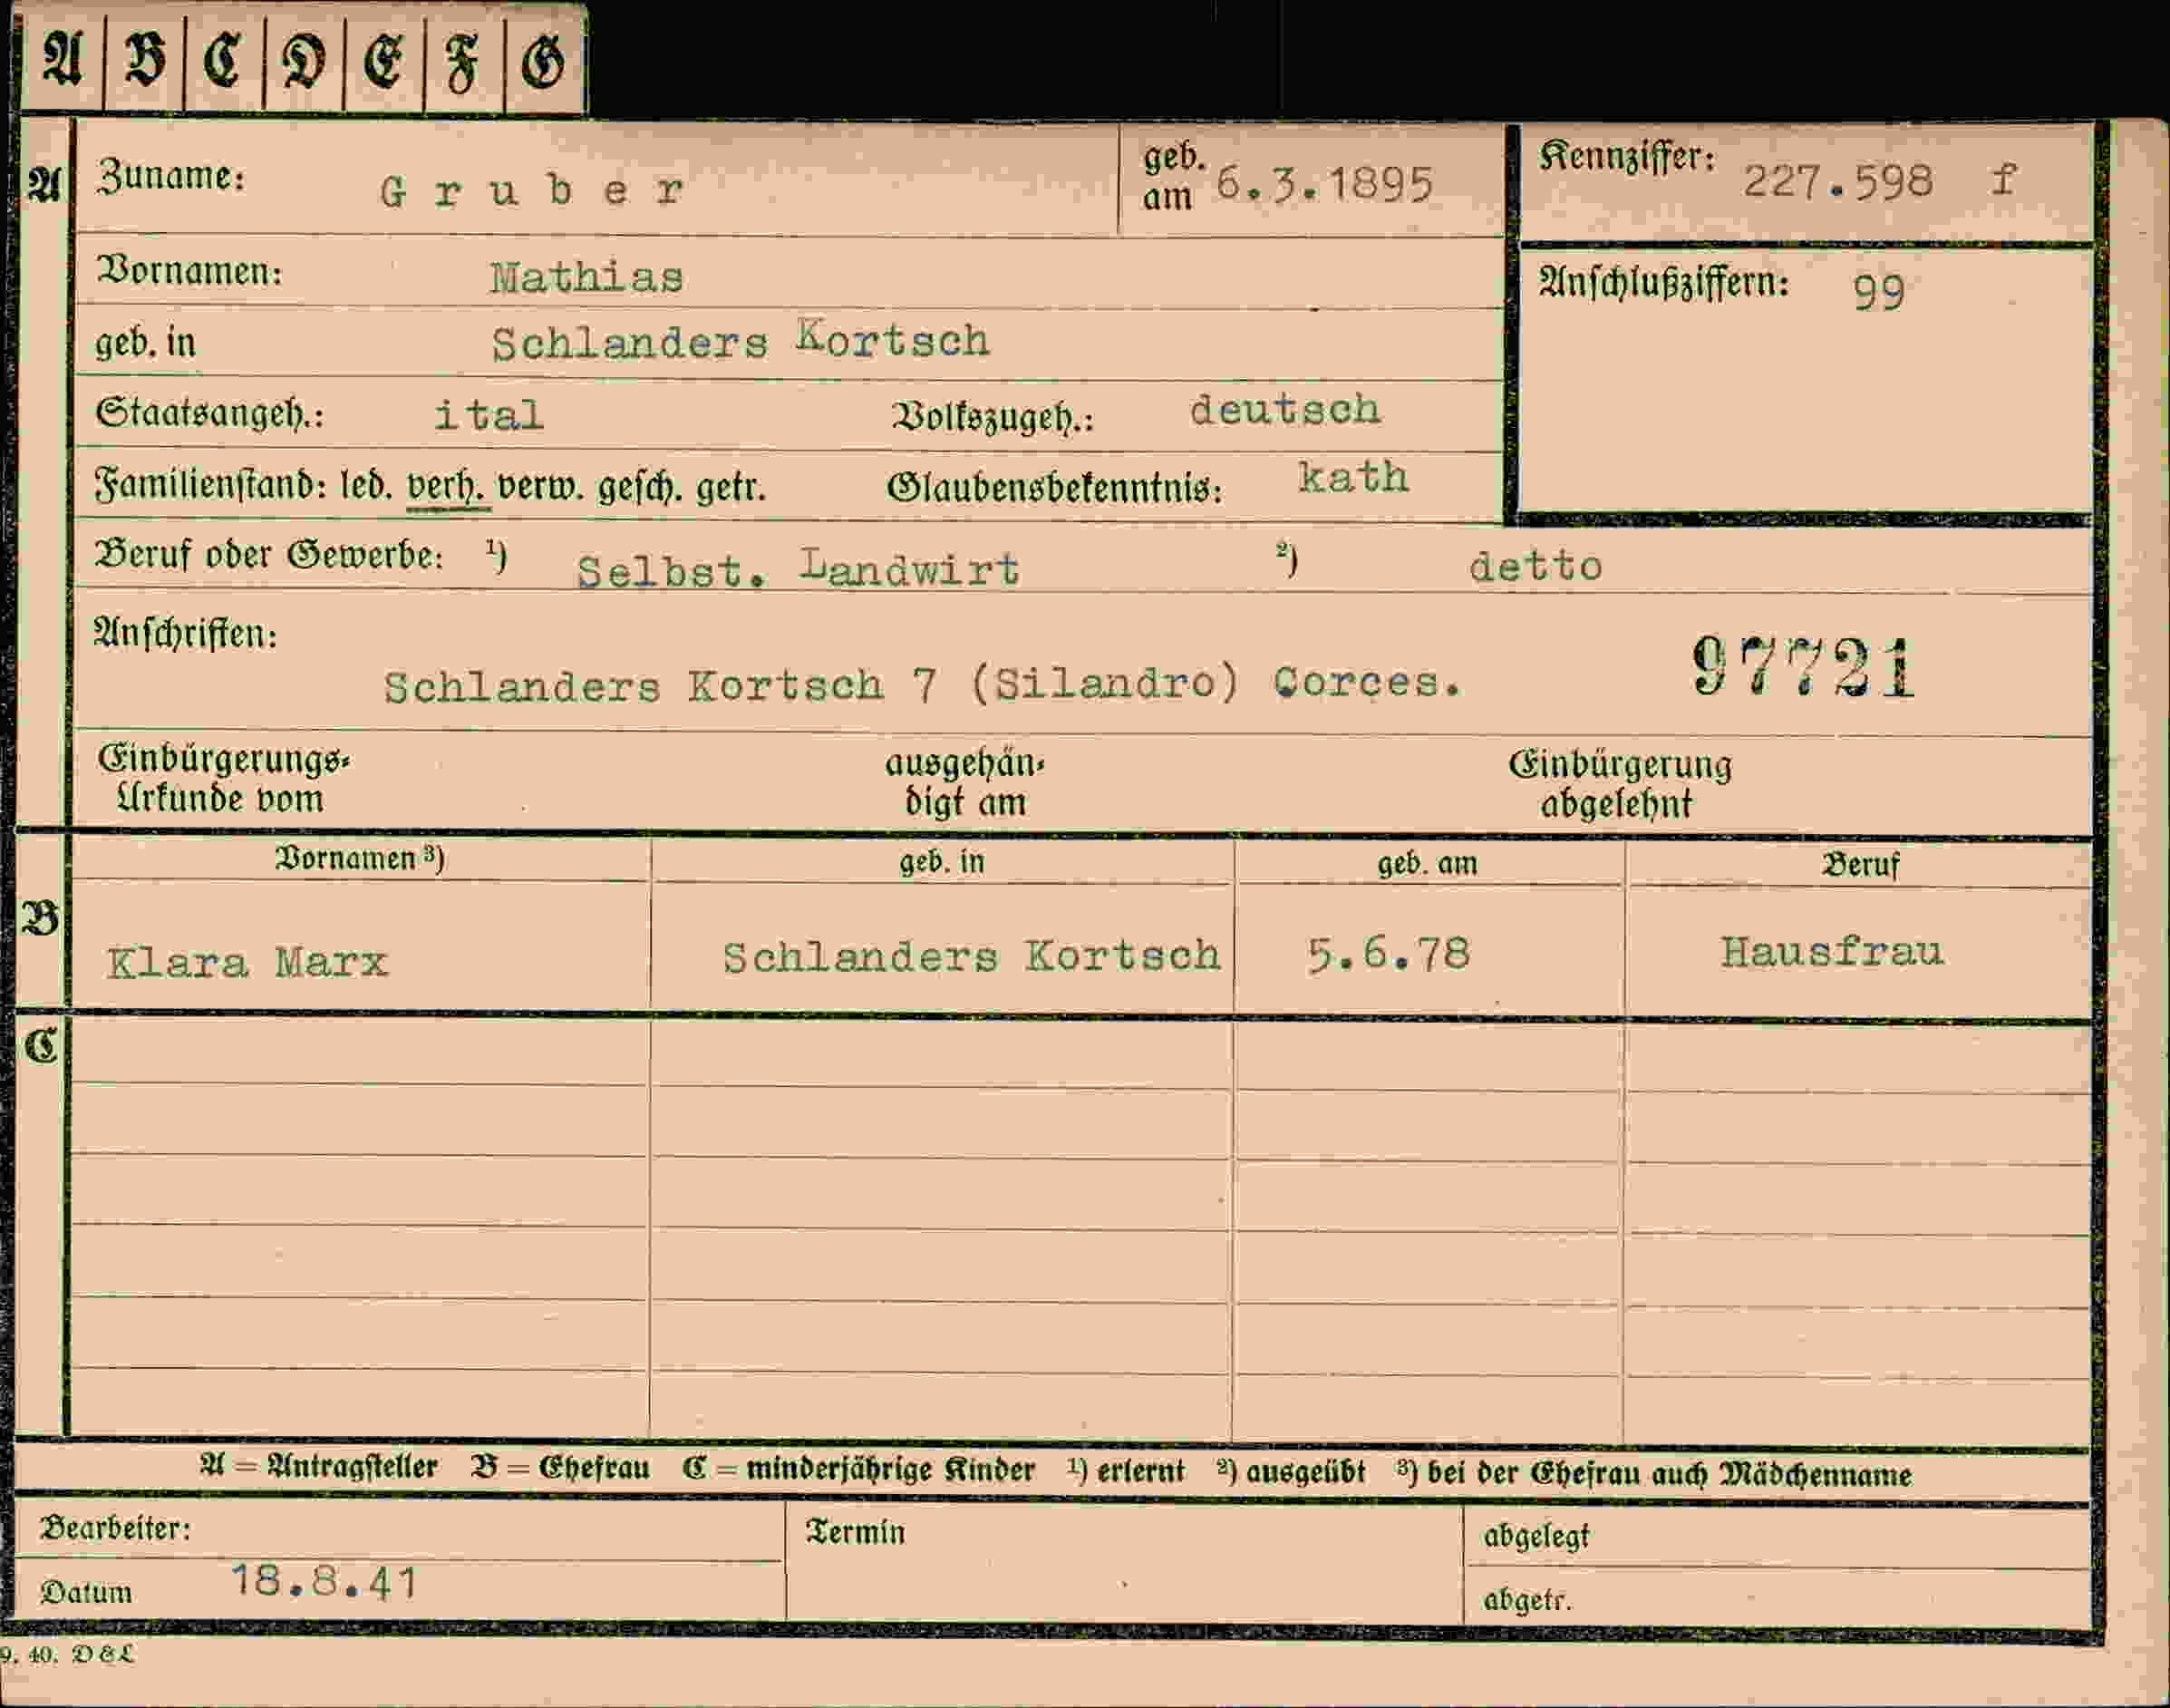 A B C D E F G
A Zuname: Gruber geb. am 6.3.1895 Kennziffer: 227.598 f
Vornamen: Mathias Anschlußziffern: 99
geb. in Schlanders Kortsch
Staatsangeh.: ital Volkszugeh.: deutsch
Familienstand: led. verh. verw. gesch. getr. Glaubensbekenntnis: kath
Beruf oder Gewerbe: ¹) Selbst. Landwirt ²) detto
Anschriften:
Schlanders Kortsch 7 (Silandro) Corces. 97721
Einbürgerungs- ausgehän- Einbürgerung
Urkunde vom digt am abgelehnt
Vornamen ³) geb. in geb. am Beruf
B Klara Marx Schlanders Kortsch 5.6.78 Hausfrau
C
A = Antragsteller B = Ehefrau C = minderjährige Kinder ¹) erlernt ²) ausgeübt ³) bei der Ehefrau auch Mädchenname
Bearbeiter: Termin abgelegt
Datum 18.8.41 abgetr.
9. 40. D & L